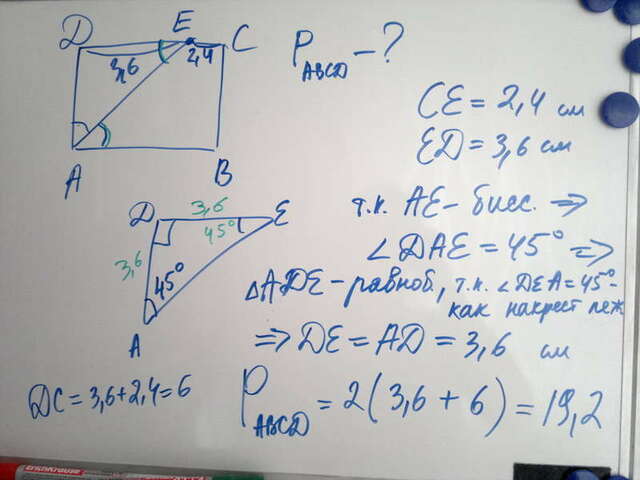 D E C
3,6 2,4
A B
P ABCD - ?
CE = 2,4 см
ED = 3,6 см
т.к. AE - бисс. ⇒
∠DAE = 45° ⇒
△ADE - равноб., т.к. ∠DEA = 45° -
как накрест леж
⇒ DE = AD = 3,6 см
D 3,6 E
45°
3,6
45°
A
DC = 3,6 + 2,4 = 6
P ABCD = 2(3,6 + 6) = 19,2